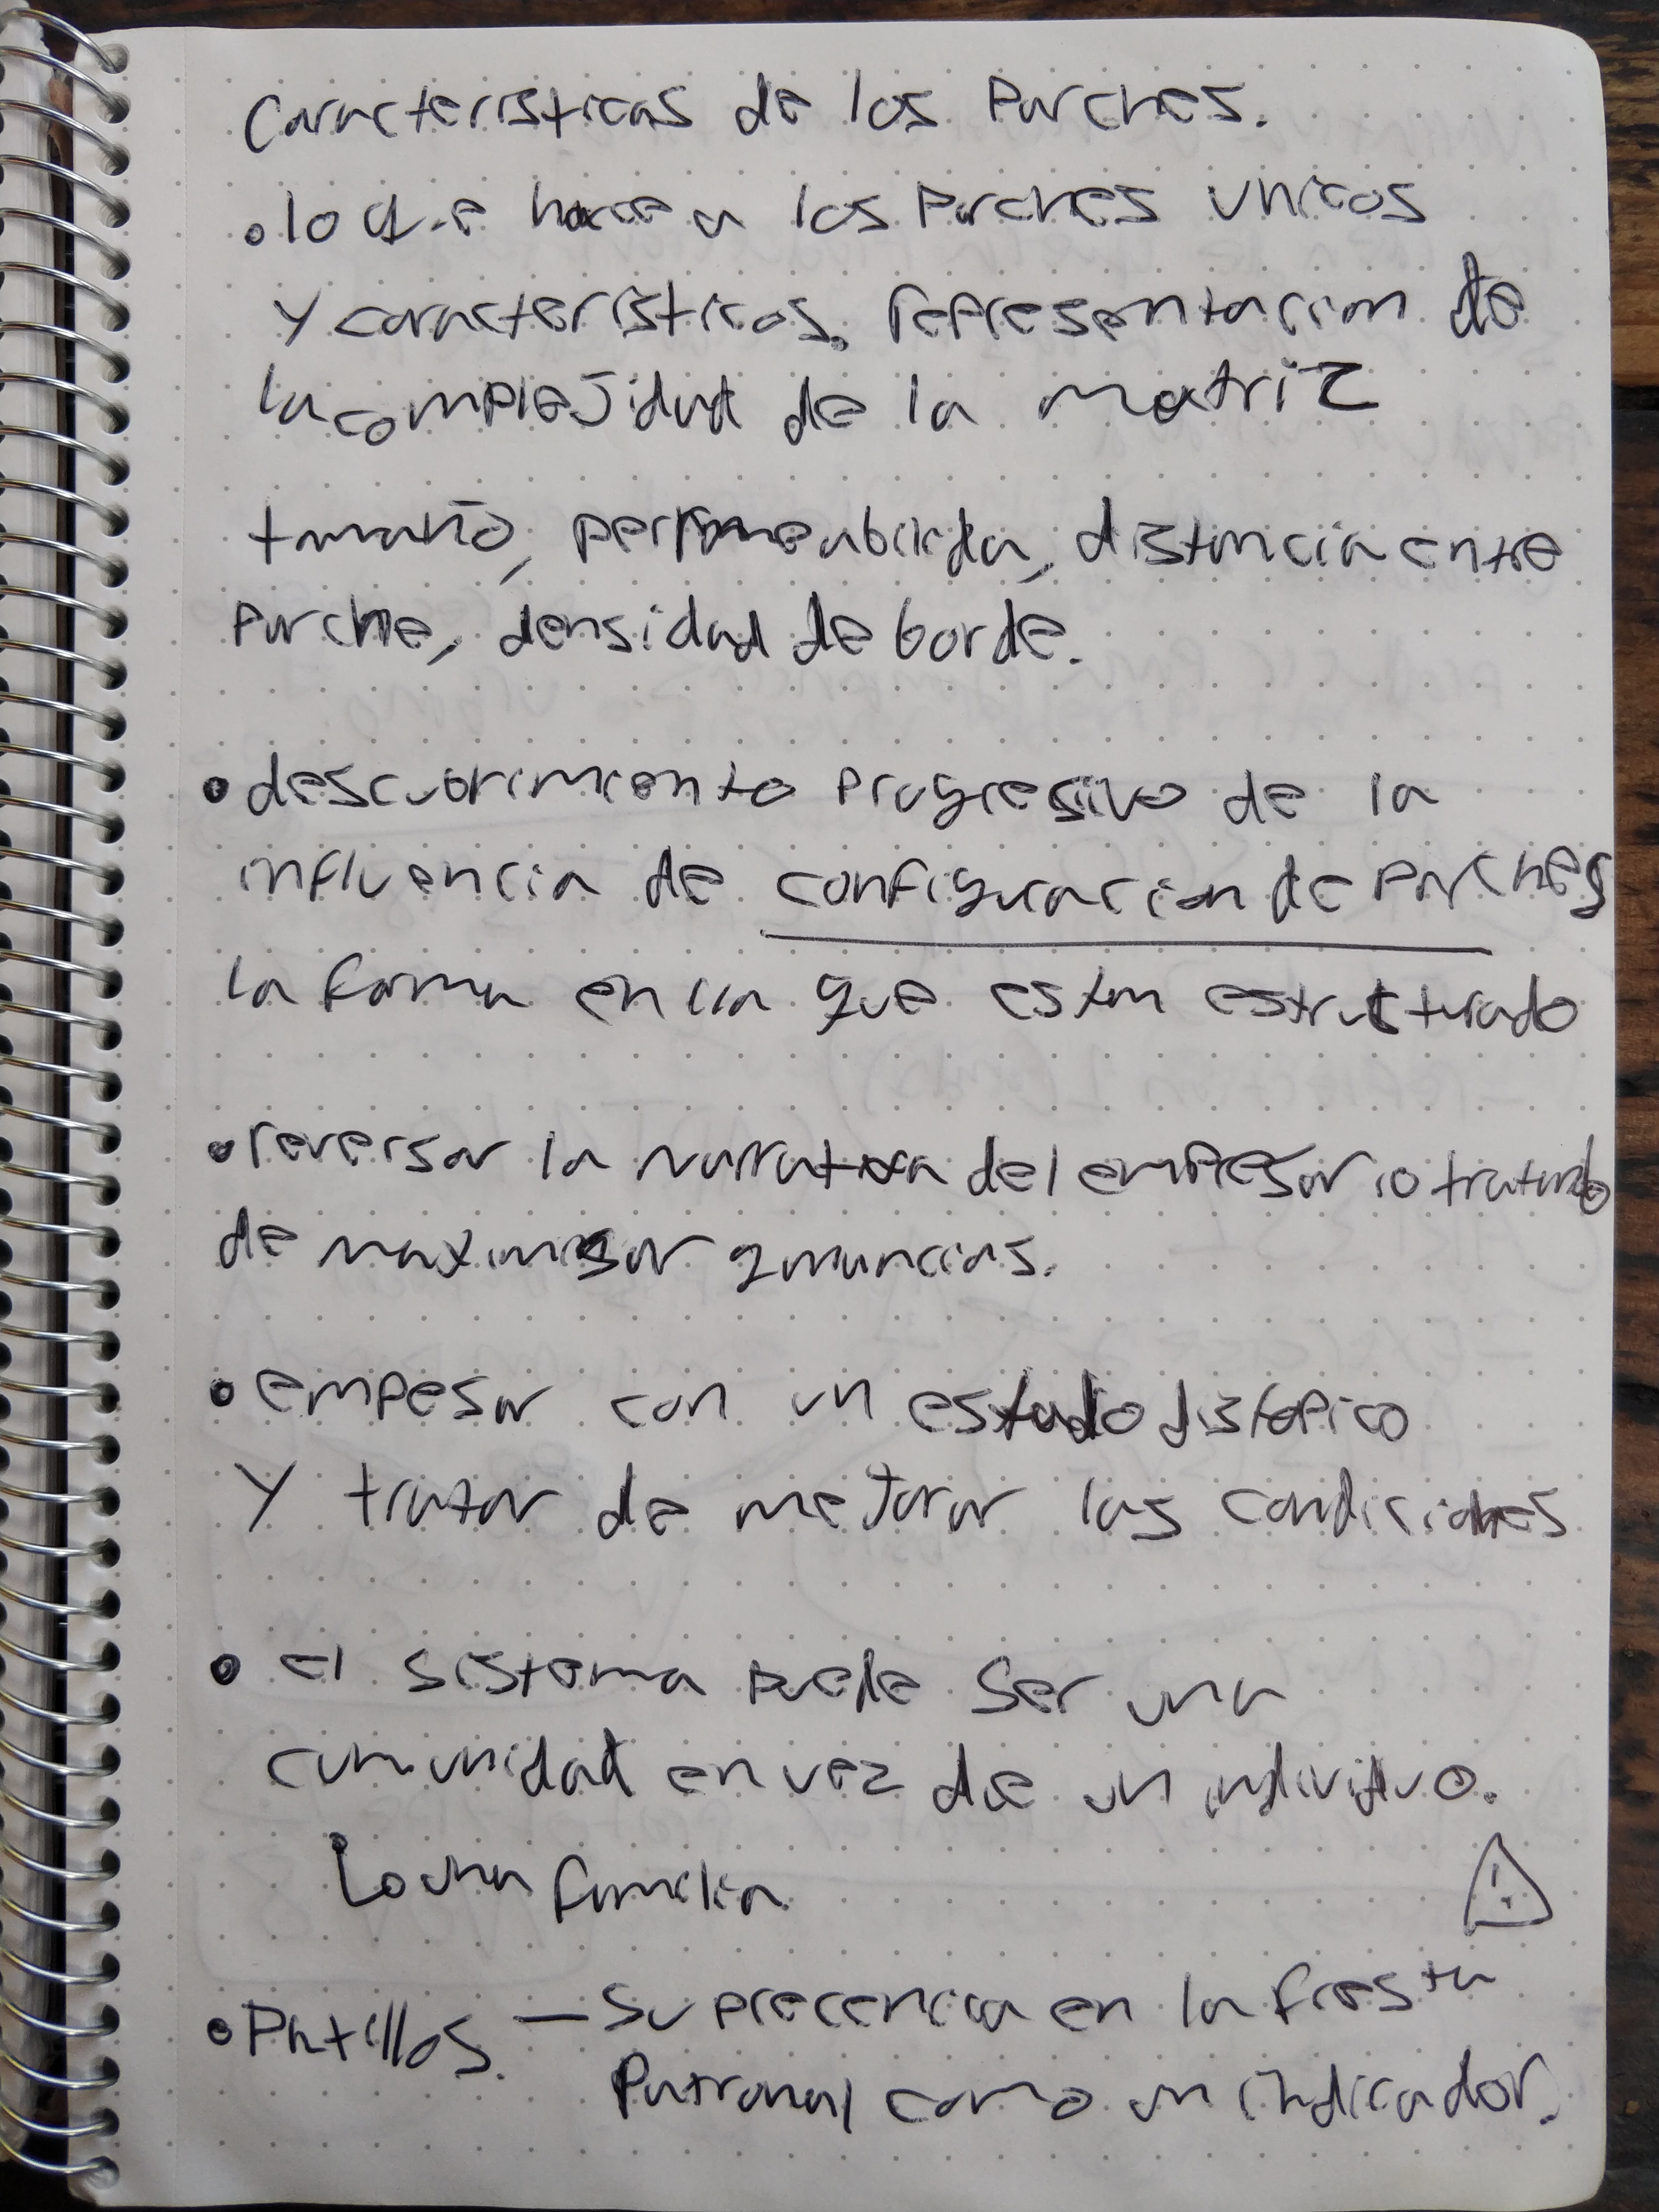 Caracteristicas de los Parches.
• lo que hace a los Parches unicos
Y caracteristicos. representacion de
la complejidad de la matriz
tamaño, permeabilida, distancia entre
Parche, densidad de borde.
• descubrimiento progresivo de la
influencia de configuracion de Parches
la forma en la que estan estructurado
• reversar la narrativa del empresario tratando
de maximisar ganancias.
• empesar con un estado distopico
Y tratar de mejorar las condiciones
• el sistema puede ser una
comunidad en vez de un individuo.
Lo una familia
!
• Patillos. — Su precencia en la fiesta
Patronal como un indicador.